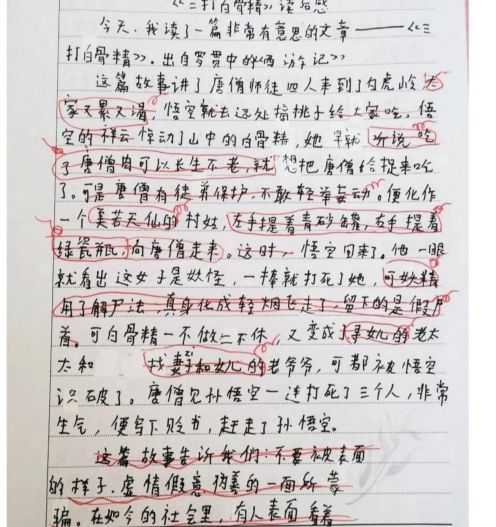 《三打白骨精》读后感
今天,我读了一篇非常有意思的文章——《三
打白骨精》。出自罗贯中的《西游记》
这篇故事讲了唐僧师徒四人来到了白虎岭大
家又累又渴,悟空就去远处摘桃子给大家吃。悟
空的祥云惊动了山中的白骨精,她早就听说吃
了唐僧肉可以长生不老,就想把唐僧给捉来吃
了。可是唐僧有徒弟保护,不敢轻举妄动。便化作
一个美若天仙的村姑,左手提着青砂罐,右手提着
绿瓷瓶,向唐僧走来。这时,悟空回来了。他一眼
就看出这女子是妖怪,一棒就打死了她,可妖精
用了解尸法,真身化成轻烟飞走了,留下的是假尸
首。可白骨精一不做二不休,又变成了寻女儿的老太
太和 找妻子和女儿的老爷爷,可都被悟空
识破了。唐僧见孙悟空一连打死了三个人,非常
生气,便写下贬书,赶走了孙悟空。
这篇故事告诉我们:不要被表面
的样子.虚情假意伪善的一面所蒙
骗。在如今的社会里,有人表面看着